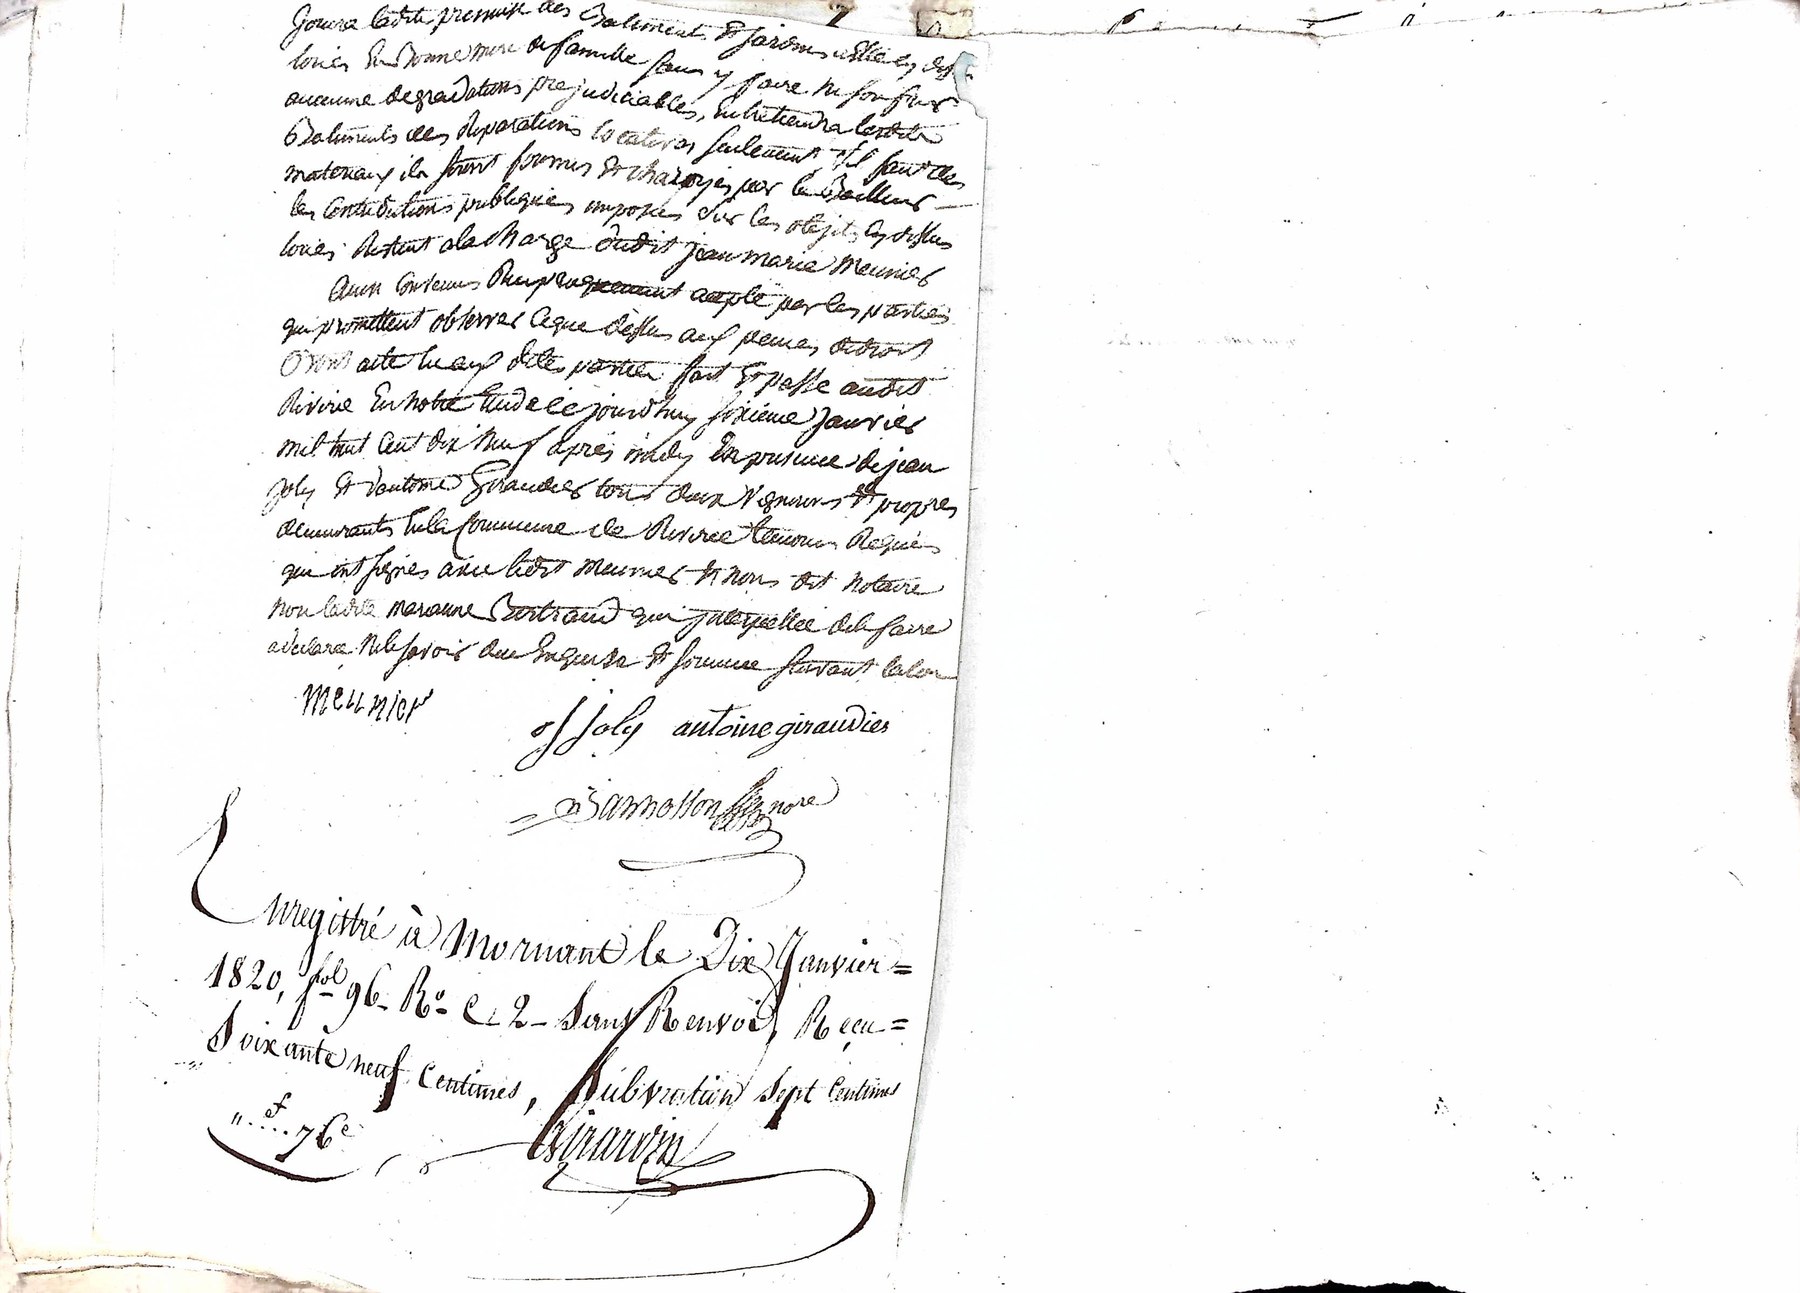 Jouira ladite preneuse des Batiments et jardins elle cy des
loués En bonne mere de famille sans y faire ni souffrir
aucunne degradations prejudiciables, Entretiendra lesdits
Batiments des Reparations locatives seulement s'il faut des
materiaux ils seront fournis et charoyés par le Bailleur
les Contributions publiques imposées sur les objets cy dessus
loués Restent a la charge dudit jean marie Meunier
Ainsi Convenus Reciproquement accepté par les parties
qui promettent observer ceque dessus aux peines de droit
Dont acte lu aux dites parties fait et passé audit
Riverie En notre Etude ce jourdhuy sixieme janvier
mil huit cent dix neuf après midy En presence de jean
joly et dantoine Giraudier tous deux Vignerons et propres
demeurants En la Commune de Riverie temoins Requis
qui ont signés avec ledit Meunier et nous dit notaire
non ladite marianne Bertrand qui interpellée de le faire
a declaré Ne le savoir de ce Enquise et sommée suivant la loi
Meunier
joly antoine giraudier
nore
Enregistré à Mornant le Dix Janvier =
1820, fol 96 - Ro C. 2 - Sans Renvoi, Reçu =
Soixante neuf Centimes, Subvention Sept Centimes
"..f..76c